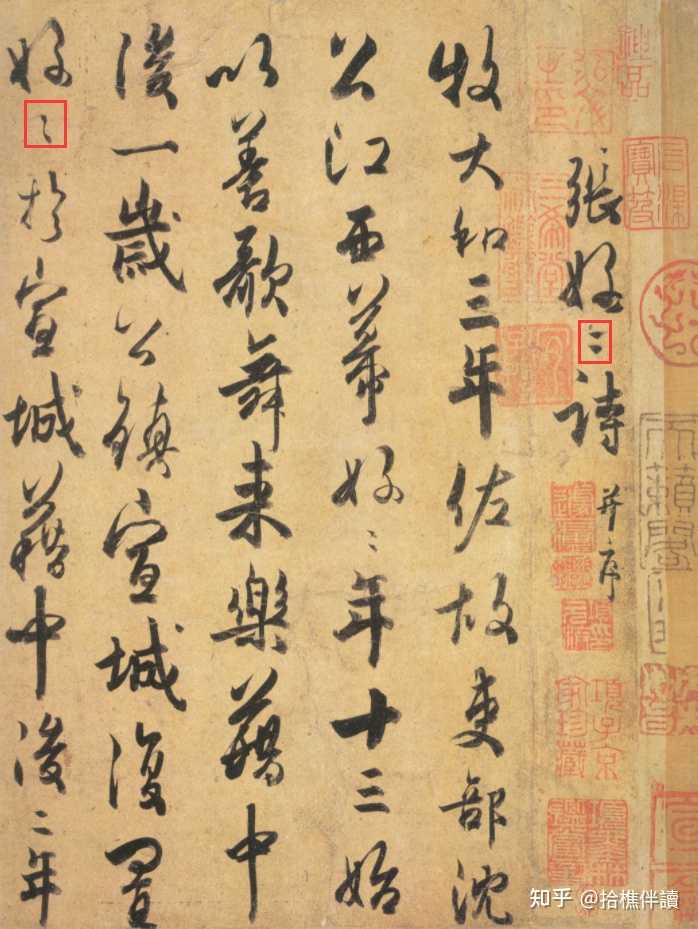 張好〻詩 并序
牧大和三年佐故吏部沈
公江西幕好〻年十三始
以善歌舞来樂藉中
後一歲公鎮宣城復置
好〻於宣城藉中後二年
天籟閣
項子京家珍藏
知乎 @拾樵伴讀